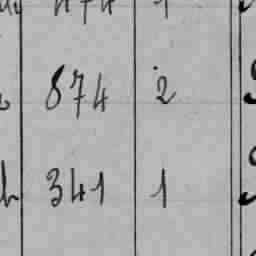 874 2
341 1